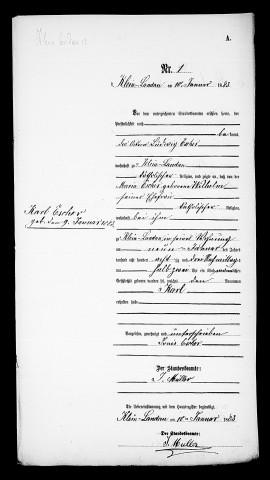 A.
Nr. 1
Klein-Landau am 10ten Januar 1883
Vor dem unterzeichneten Standesbeamten erschien heute, der
Persönlichkeit nach
kannt,
der Ludwig Escher
wohnhaft zu Klein-Landau
katholischer Religion, und zeigte an, daß von der
Maria Escher geborene Wilhelm
seiner Ehefrau
katholischer Religion,
wohnhaft bei ihm
zu Klein-Landau in seiner Wohnung
am neun ten Januar des Jahres
tausend acht hundert achtzig und drei Nachmittags
um halb zwei Uhr ein Kind männlichen
Geschlechts geboren worden sei, welches den Vornamen
Karl
erhalten habe
Karl Escher
geb. den 9. Januar 1883
Vorgelesen, genehmigt und unterschrieben
Escher
Der Standesbeamte:
J. Muller
Die Uebereinstimmung mit dem Hauptregister beglaubigt
Klein-Landau am 10ten Januar 1883
Der Standesbeamte:
J. Muller